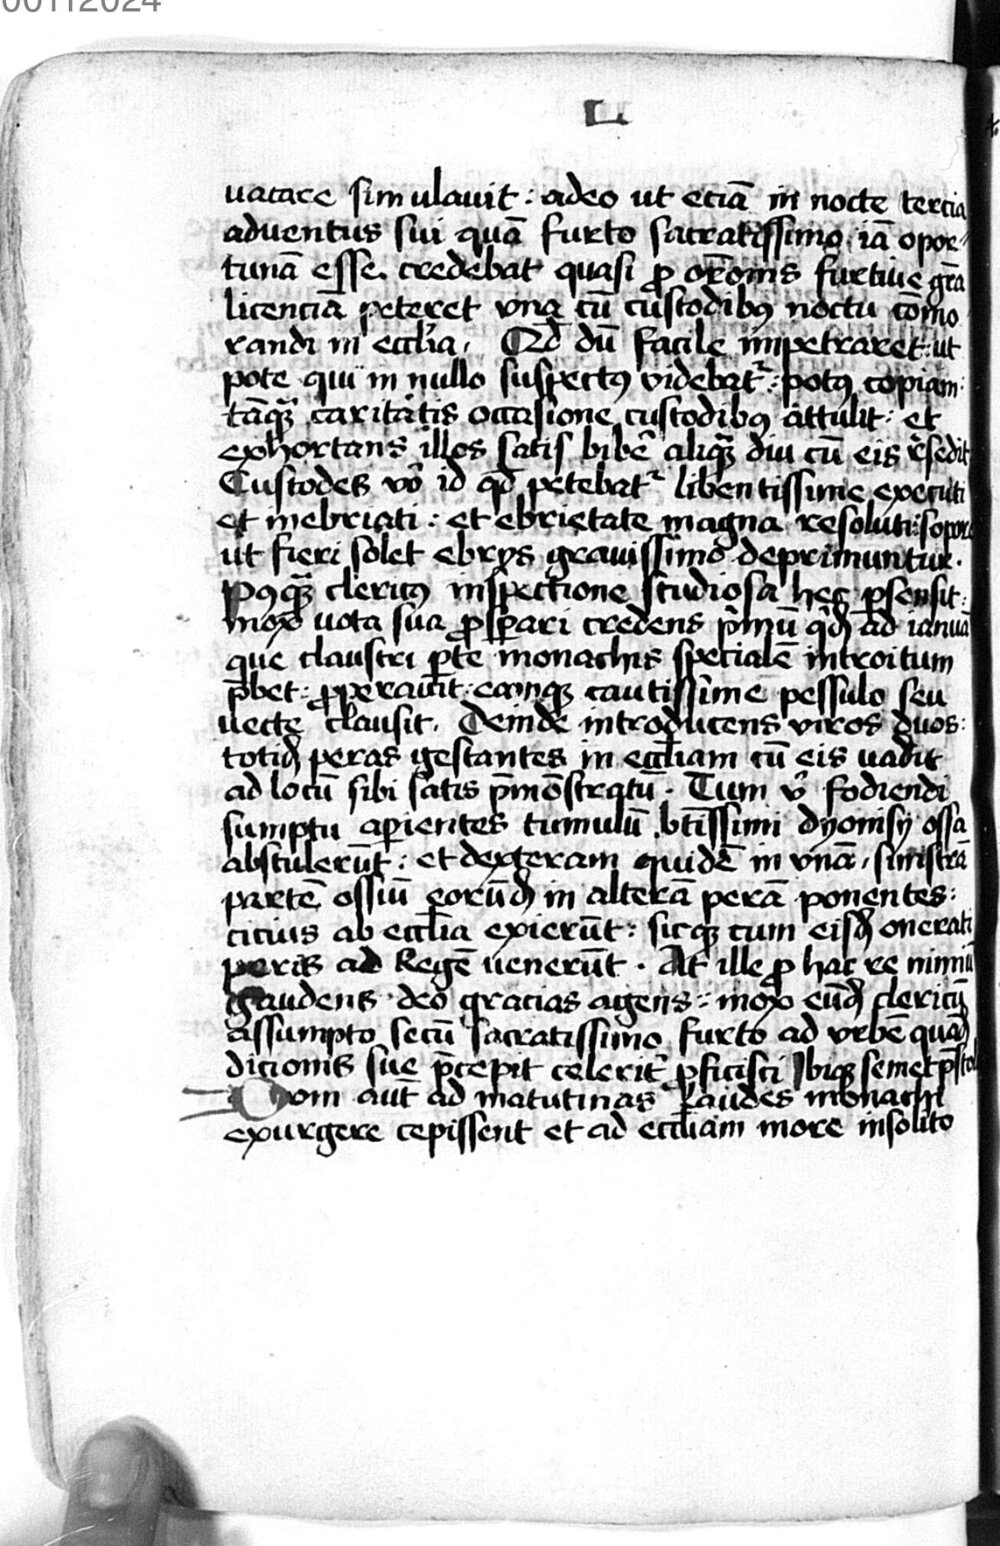 00112024
L
uacare simulauit : adeo ut eciā in nocte tercia
aduentus sui quā furto sacratissimo iā opor⸗
tunā esse credebat quasi ꝓ or̄onis furtiue gr̄a
licenciā peteret vna cū custodibꝰ noctu cōmo
randi in eccl̄ia . Qd̄ dū facile impetraret : ut
pote qui in nullo suspectꝰ videbat᷑ : potꝰ copiam :
tāqꝫ caritatis occasione custodibꝰ attulit : et
exhortans illos satis bibe᷑ aliqꝫ diu cū eis r̄sedit
Custodes vo᷑ id qd̄ petebat᷑ libentissime executi
et inebriati : et ebrietate magna resoluti : sopore
ut fieri solet ebrijs grauissimo deprimuntur .
Pꝰqꝫ clericꝰ inspectione studiosa hec p̱sensit :
mox uota sua ꝓsp̱ari credens p̓mū qͥdē ad ianuā
que claustri p̱te monachis specialē introitum
p̄bet : ꝓp̱erauit : eamqꝫ cautissime pessulo seu
uecte clausit . Deinde introducens viros duos :
totidē peras gestantes in eccl̄iam cū eis uadit
ad locū sibi satis p̄mōstratū . Tum vo᷑ fodiendi
sumptu ap̱ientes tumulū bt̄issimi dyonisij ossa
abstulerūt : et dexteram quidē in vnā , sinistrā
partē ossiū eorūdē in alterā perā ponentes :
cicius ab eccl̄ia exierūt : sicqꝫ cum eisdē onerati
peris ad Regē uenerūt . At ille ꝓ hac re nimiū
gaudens deo gracias agens : mox eūdē clericū
assumpto secū sacratissimo furto ad vrbē quādā
dicionis sue p̄cepit celerit᷑ ꝓficisci Ibiqꝫ semet p̄stol
Dom aut̄ ad matutinas laudes monachi
exurgere cepissent et ad eccl̄iam more insolito